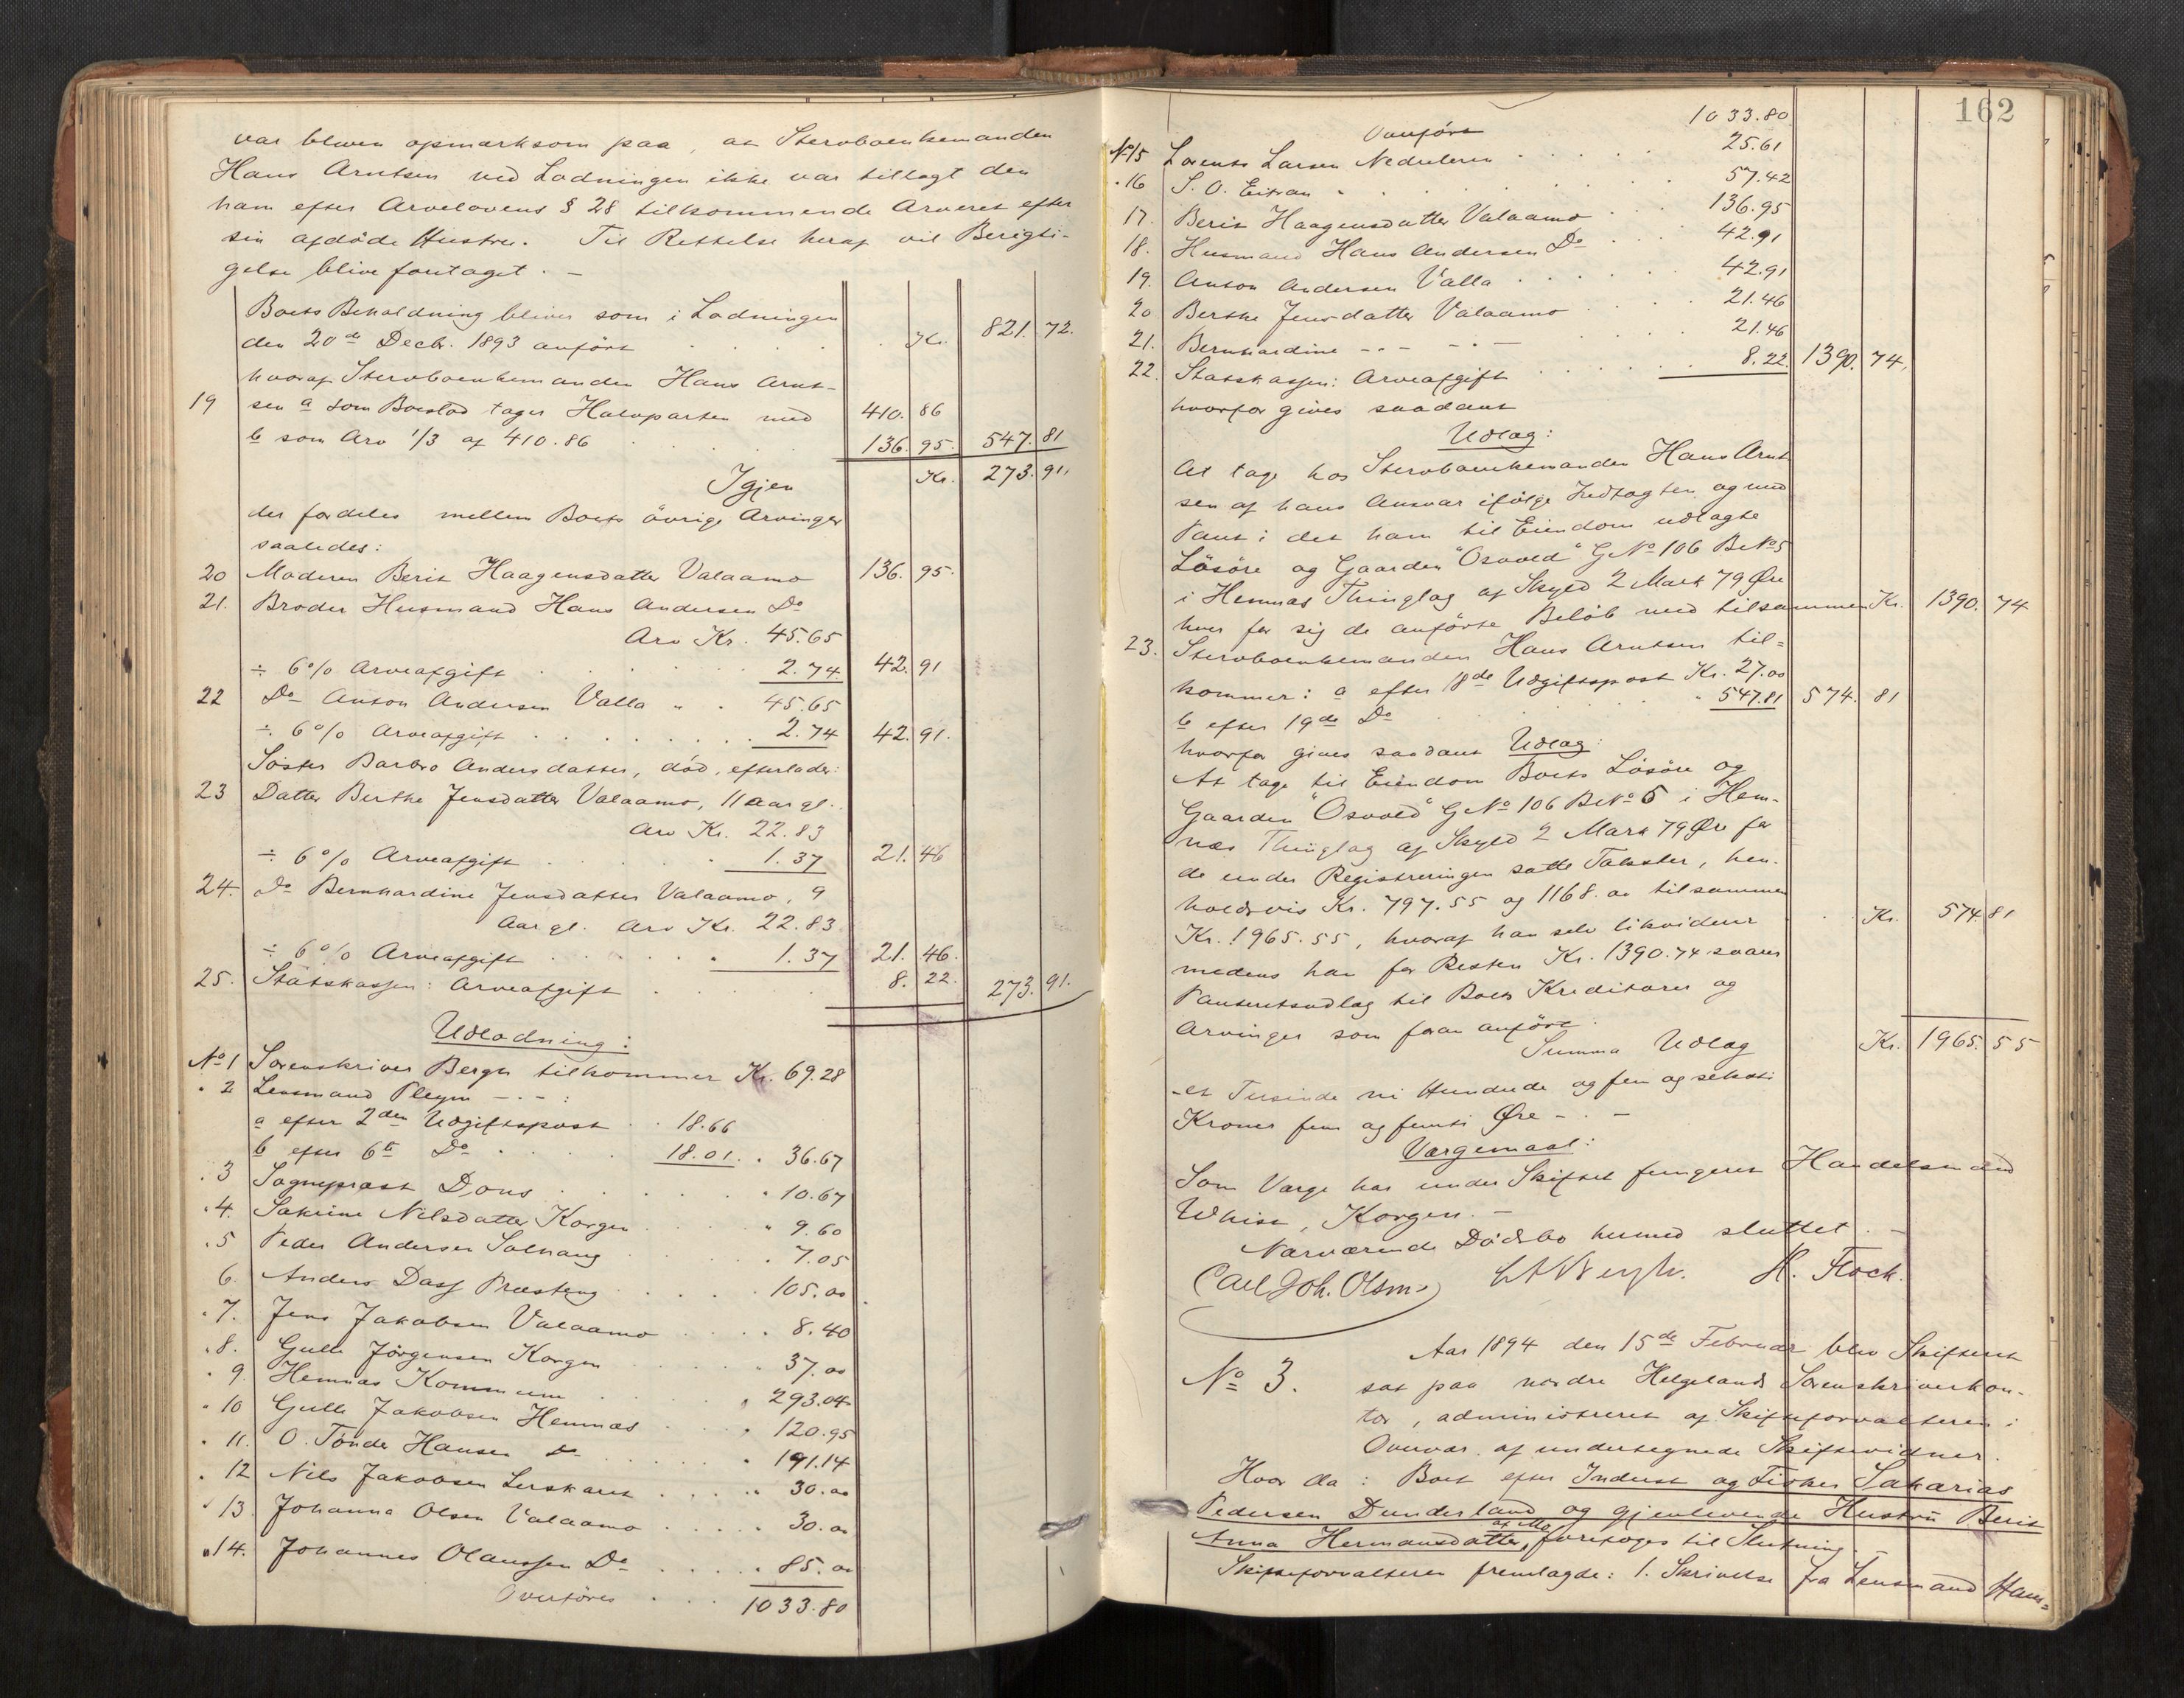 var bleven opmærksom paa, at Stervboenkemanden
Hans Arntsen ved Lodningen ikke var tillagt den
ham efter Arvelovens § 28 tilkommende Arveret efter
sin afdöde Hustru. Til Rettelse heraf vil Berigti-
gelse blive foretaget. –
Boets Beholdning bliver som i Lodningen
den 20de Decbr. 1893 anfört . . . . Kr. 821. 72.
hvoraf Stervboenkemanden Hans Arnt-
19 sen a som Boeslod tager Halvparten med 410. 86
b som Arv 1/3 af 410.86 . . . 136. 95. 547. 81
Igjen Kr. 273. 91.
der fordeles mellem Boets övrige Arvinger
saaledes:
20 Moderen Berit Haagensdatter Valaamo 136. 95.
21. Broder Husmand Hans Andersen Do
Arv Kr. 45.65
÷ 6% Arveafgift . . . . 2.74 42. 91
22 Do Anton Andersen Valla " . 45.65
÷ 6% Arveafgift . . . . 2.74 42. 91.
Söster Barbro Andersdatter, död, efterlader:
23 Datter Berthe Jensdatter Valaamo, 11 Aar gl.
Arv Kr. 22.83
÷ 6% Arveafgift . . . . 1.37 21. 46
24. Do Bernhardine Jensdatter Valaamo, 9
Aar gl. Arv Kr. 22.83
÷ 6% Arveafgift . . . . 1.37 21. 46.
25. Statskassen: Arveafgift . . . 8. 22. 273. 91.
Udlodning:
No 1 Sorenskriver Bergh tilkommer Kr. 69.28
" 2 Lensmand Pleym –.–:
a efter 2den Udgiftspost . . 18.66
b efter 6te Do . . . . 18.01. . 36.67
. 3 Sogneprest Dons . . . . . " 10.67
" 4. Sakrine Nilsdatter Korgen . . . " 9.60
. 5 Peder Andersen Solhaug . . . . 7.05
6. Anders Dass Præsteng . . . . 105.00
. 7. Jens Jakobsen Valaamo . . . . 8.40
. 8. Gulle Jörgensen Korgen . . . . " 37.00
" 9. Hemnæs Kommune . . . . " 293.04
" 10 Gulle Jakobsen Hemnæs . . . " 120.95
. 11. O. Tönder Hansen Do . . . . " 191.14
. 12 Nils Jakobsen Lerskaret . . . " 30.00
" 13. Johanna Olsen Valaamo . . . . 30.00
" 14. Johannes Olaussen Do . . . . 85.00
Overföres . . . 1033.80
162
Overfört 1033.80
No 15 Lorents Larsen Nedreleren . . . . . 25.61
. 16 S. O. Eitran . . . . . . . 57.42
17. Berit Haagensdatter Valaamo . . . 136.95
18. Husmand Hans Andersen Do . . . 42.91
19. Anton Andersen Valla . . . . . 42.91
20 Berthe Jensdatter Valaamo . . . . 21.46
21. Bernhardine –.– –.– . . . . 21.46
22. Statskassen: Arveafgift . . . . . . 8.22. 1390. 74.
hvorfor gives saadant
Udlæg:
At tage hos Stervboenkemanden Hans Arnt
sen af hans Ansvar ifölge Indtægten og med
Pant i det ham til Eiendom udlagte
Lösöre og Gaarden "Osvold" G No 106 B No 5
i Hemnæs Thinglag af Skyld 2 Mark 79 Øre
hver for sig de anförte Belöb med tilsammen Kr. 1390. 74
23. Stervboenkemanden Hans Arntsen til-
kommer: a efter 18de Udgiftspost Kr. 27.00
b efter 19de Do . . . . . " 547.81 574. 81
hvorfor gives saadant Udlæg:
At tage til Eiendom Boets Lösöre og
Gaarden "Osvold" G No 106 B No 5 i Hem-
næs Thinglag af Skyld 2 Mark 79 Øre for
de under Registreringen satte Takster, hen-
holdsvis Kr. 797.55 og 1168.00 tilsammen
Kr. 1965.55, hvoraf han selv likviderer . . Kr. 574. 81
medens han for Resten Kr. 1390.74 svarer
Panteretsudlæg til Boets Kreditorer og
Arvinger som foran anfört.
Summa Udlæg Kr. 1965. 55
– et Tusinde ni Hundrede og fem og seksti
Kroner fem og femti Øre – . –
Værgemaal:
Som Værge har under Skiftet fungeret Handelsmand
Whist, Korgen. –
Nærværende Dödsbo hermed sluttet. –
Carl Joh. Olsen Bergh. H. Flock.
No 3. Aar 1894 den 15de Februar blev Skifteret
sat paa nordre Helgelands Sorenskriverkon-
tor, administreret af Skifteforvalteren i
Overvær af undertegnede Skiftevidner.
Hvor da: Boet efter Inderst og Fisker Sakarias
Pedersen Dunderland og gjenlevende Hustru Berit
Anna Hermansdatter, foretoges til Slutning –
Skifteforvalteren fremlagde: 1. Skrivelse fra Lensmand Ham=